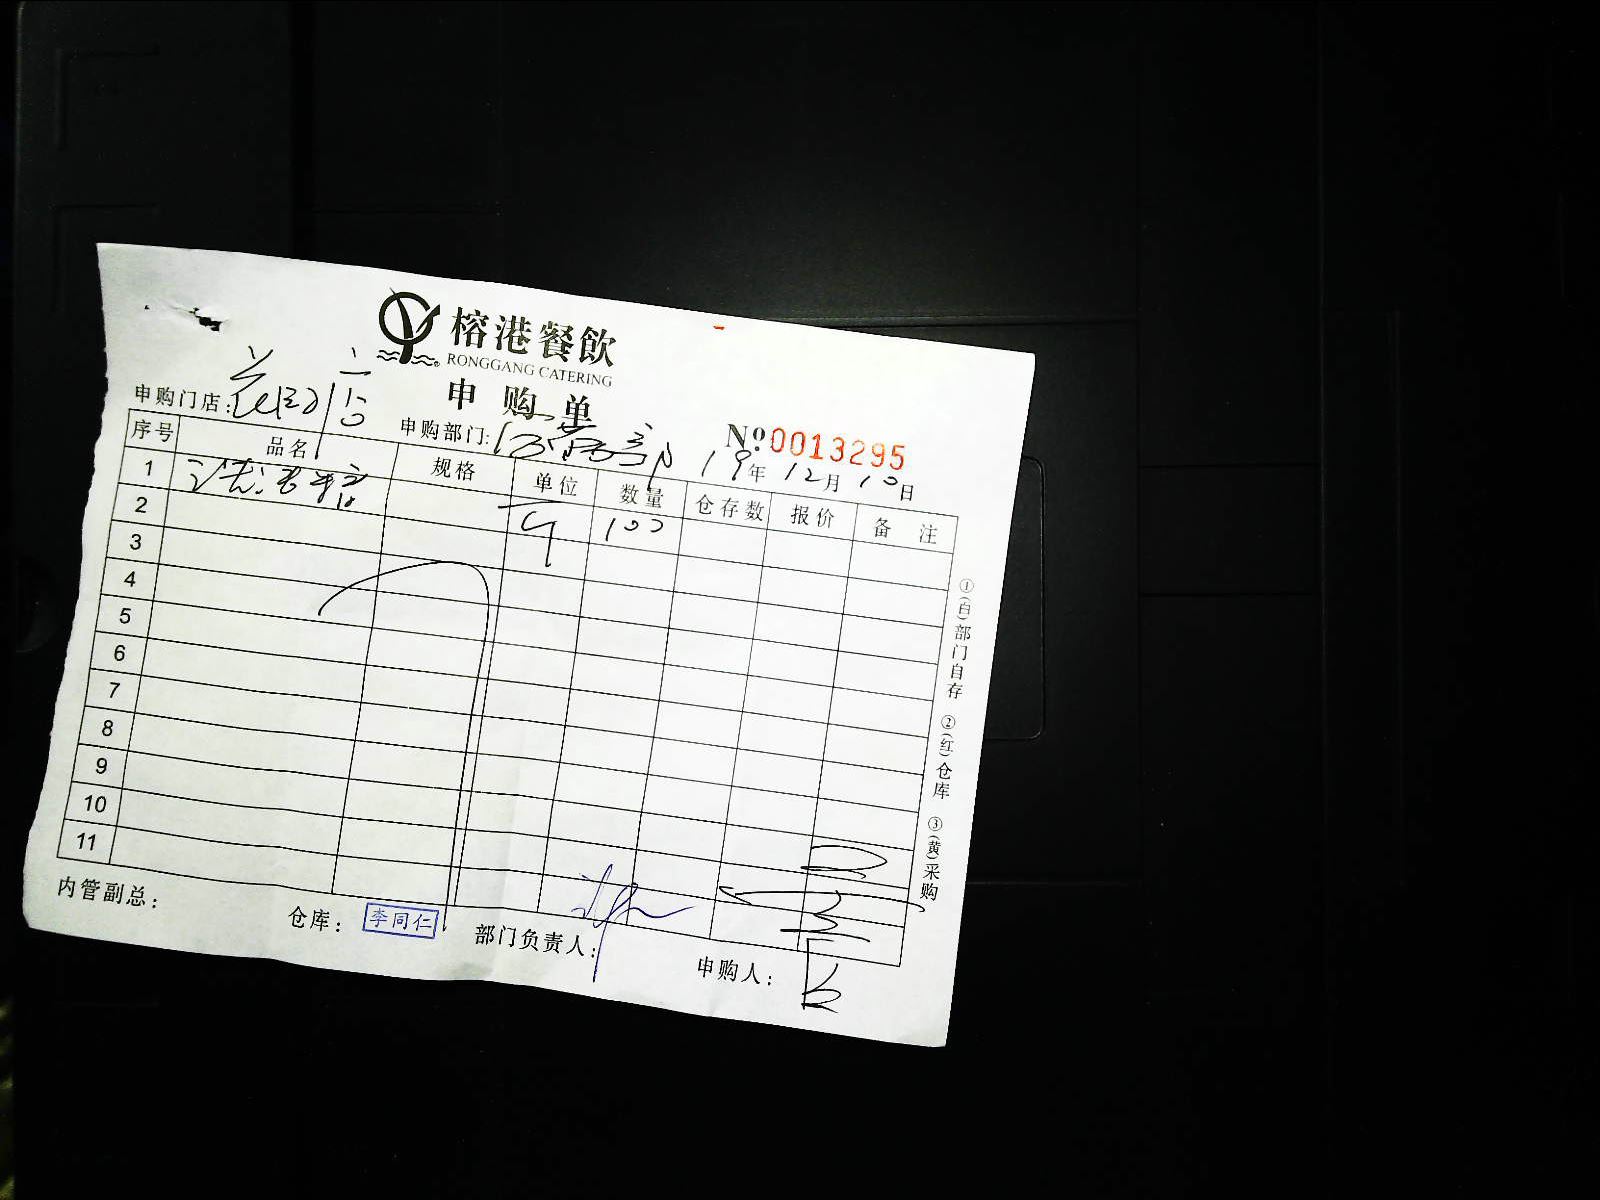 榕港餐飲
RONGGANG CATERING
申购单
申购门店: 店
申购部门: 部
№ 0013295
19年12月10日
序号 品名 规格 单位 数量 仓存数 报价 备注
1 个 100
2
3
4
5
6
7
8
9
10
11
①(白)部门自存 ②(红)仓库 ③(黄)采购
内管副总:
仓库: 李同仁
部门负责人:
申购人: